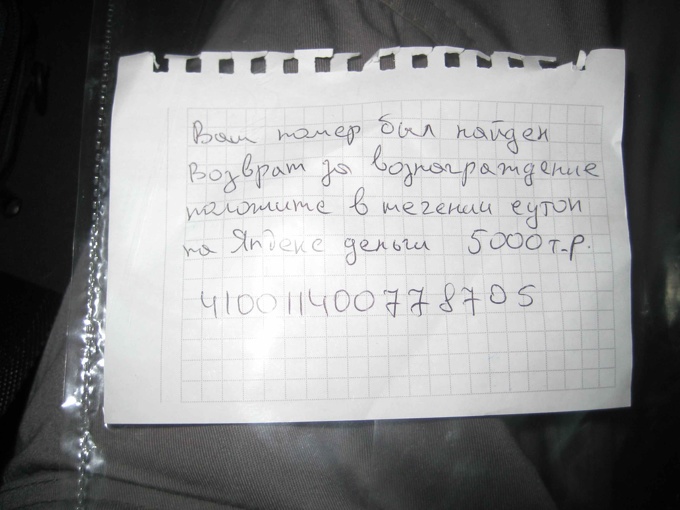 Ваш номер был найден
Возврат за вознаграждение
положите в течении сутои
на Яндекс деньги 5000т.р.
410011400778705